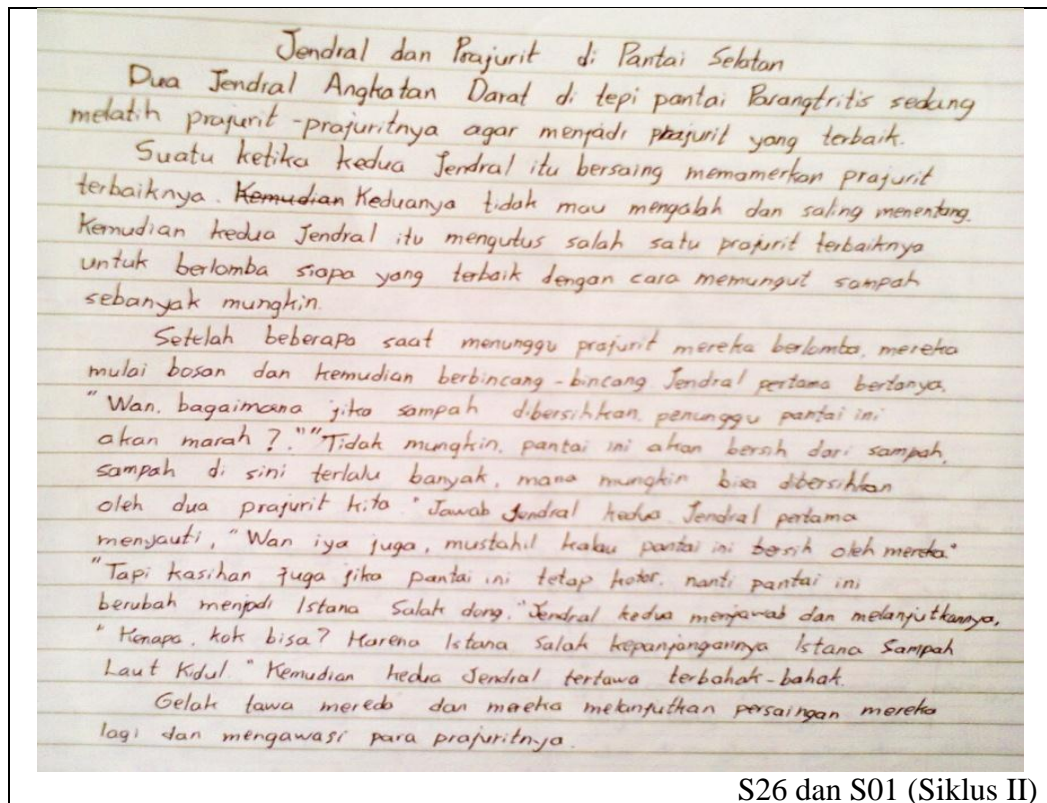 Jendral dan Prajurit di Pantai Selatan
Dua Jendral Angkatan Darat di tepi pantai Parangtritis sedang
melatih prajurit-prajuritnya agar menjadi prajurit yang terbaik.
Suatu ketika kedua Jendral itu bersaing memamerkan prajurit
terbaiknya. Kemudian Keduanya tidak mau mengalah dan saling menentang.
Kemudian kedua Jendral itu mengutus salah satu prajurit terbaiknya
untuk berlomba siapa yang terbaik dengan cara memungut sampah
sebanyak mungkin.
Setelah beberapa saat menunggu prajurit mereka berlomba, mereka
mulai bosan dan kemudian berbincang-bincang. Jendral pertama bertanya,
"Wan, bagaimana jika sampah dibersihkan, penunggu pantai ini
akan marah?." "Tidak mungkin, pantai ini akan bersih dari sampah,
sampah di sini terlalu banyak, mana mungkin bisa dibersihkan
oleh dua prajurit kita." Jawab Jendral kedua. Jendral pertama
menyauti, "Wan iya juga, mustahil kalau pantai ini bersih oleh mereka."
"Tapi kasihan juga jika pantai ini tetap kotor, nanti pantai ini
berubah menjadi Istana Salak dong." Jendral kedua menjawab dan melanjutkannya,
"Kenapa, kok bisa? Karena Istana Salak kepanjangannya Istana Sampah
Laut Kidul." Kemudian kedua Jendral tertawa terbahak-bahak.
Gelak tawa mereda dan mereka melanjutkan persaingan mereka
lagi dan mengawasi para prajuritnya.
S26 dan S01 (Siklus II)